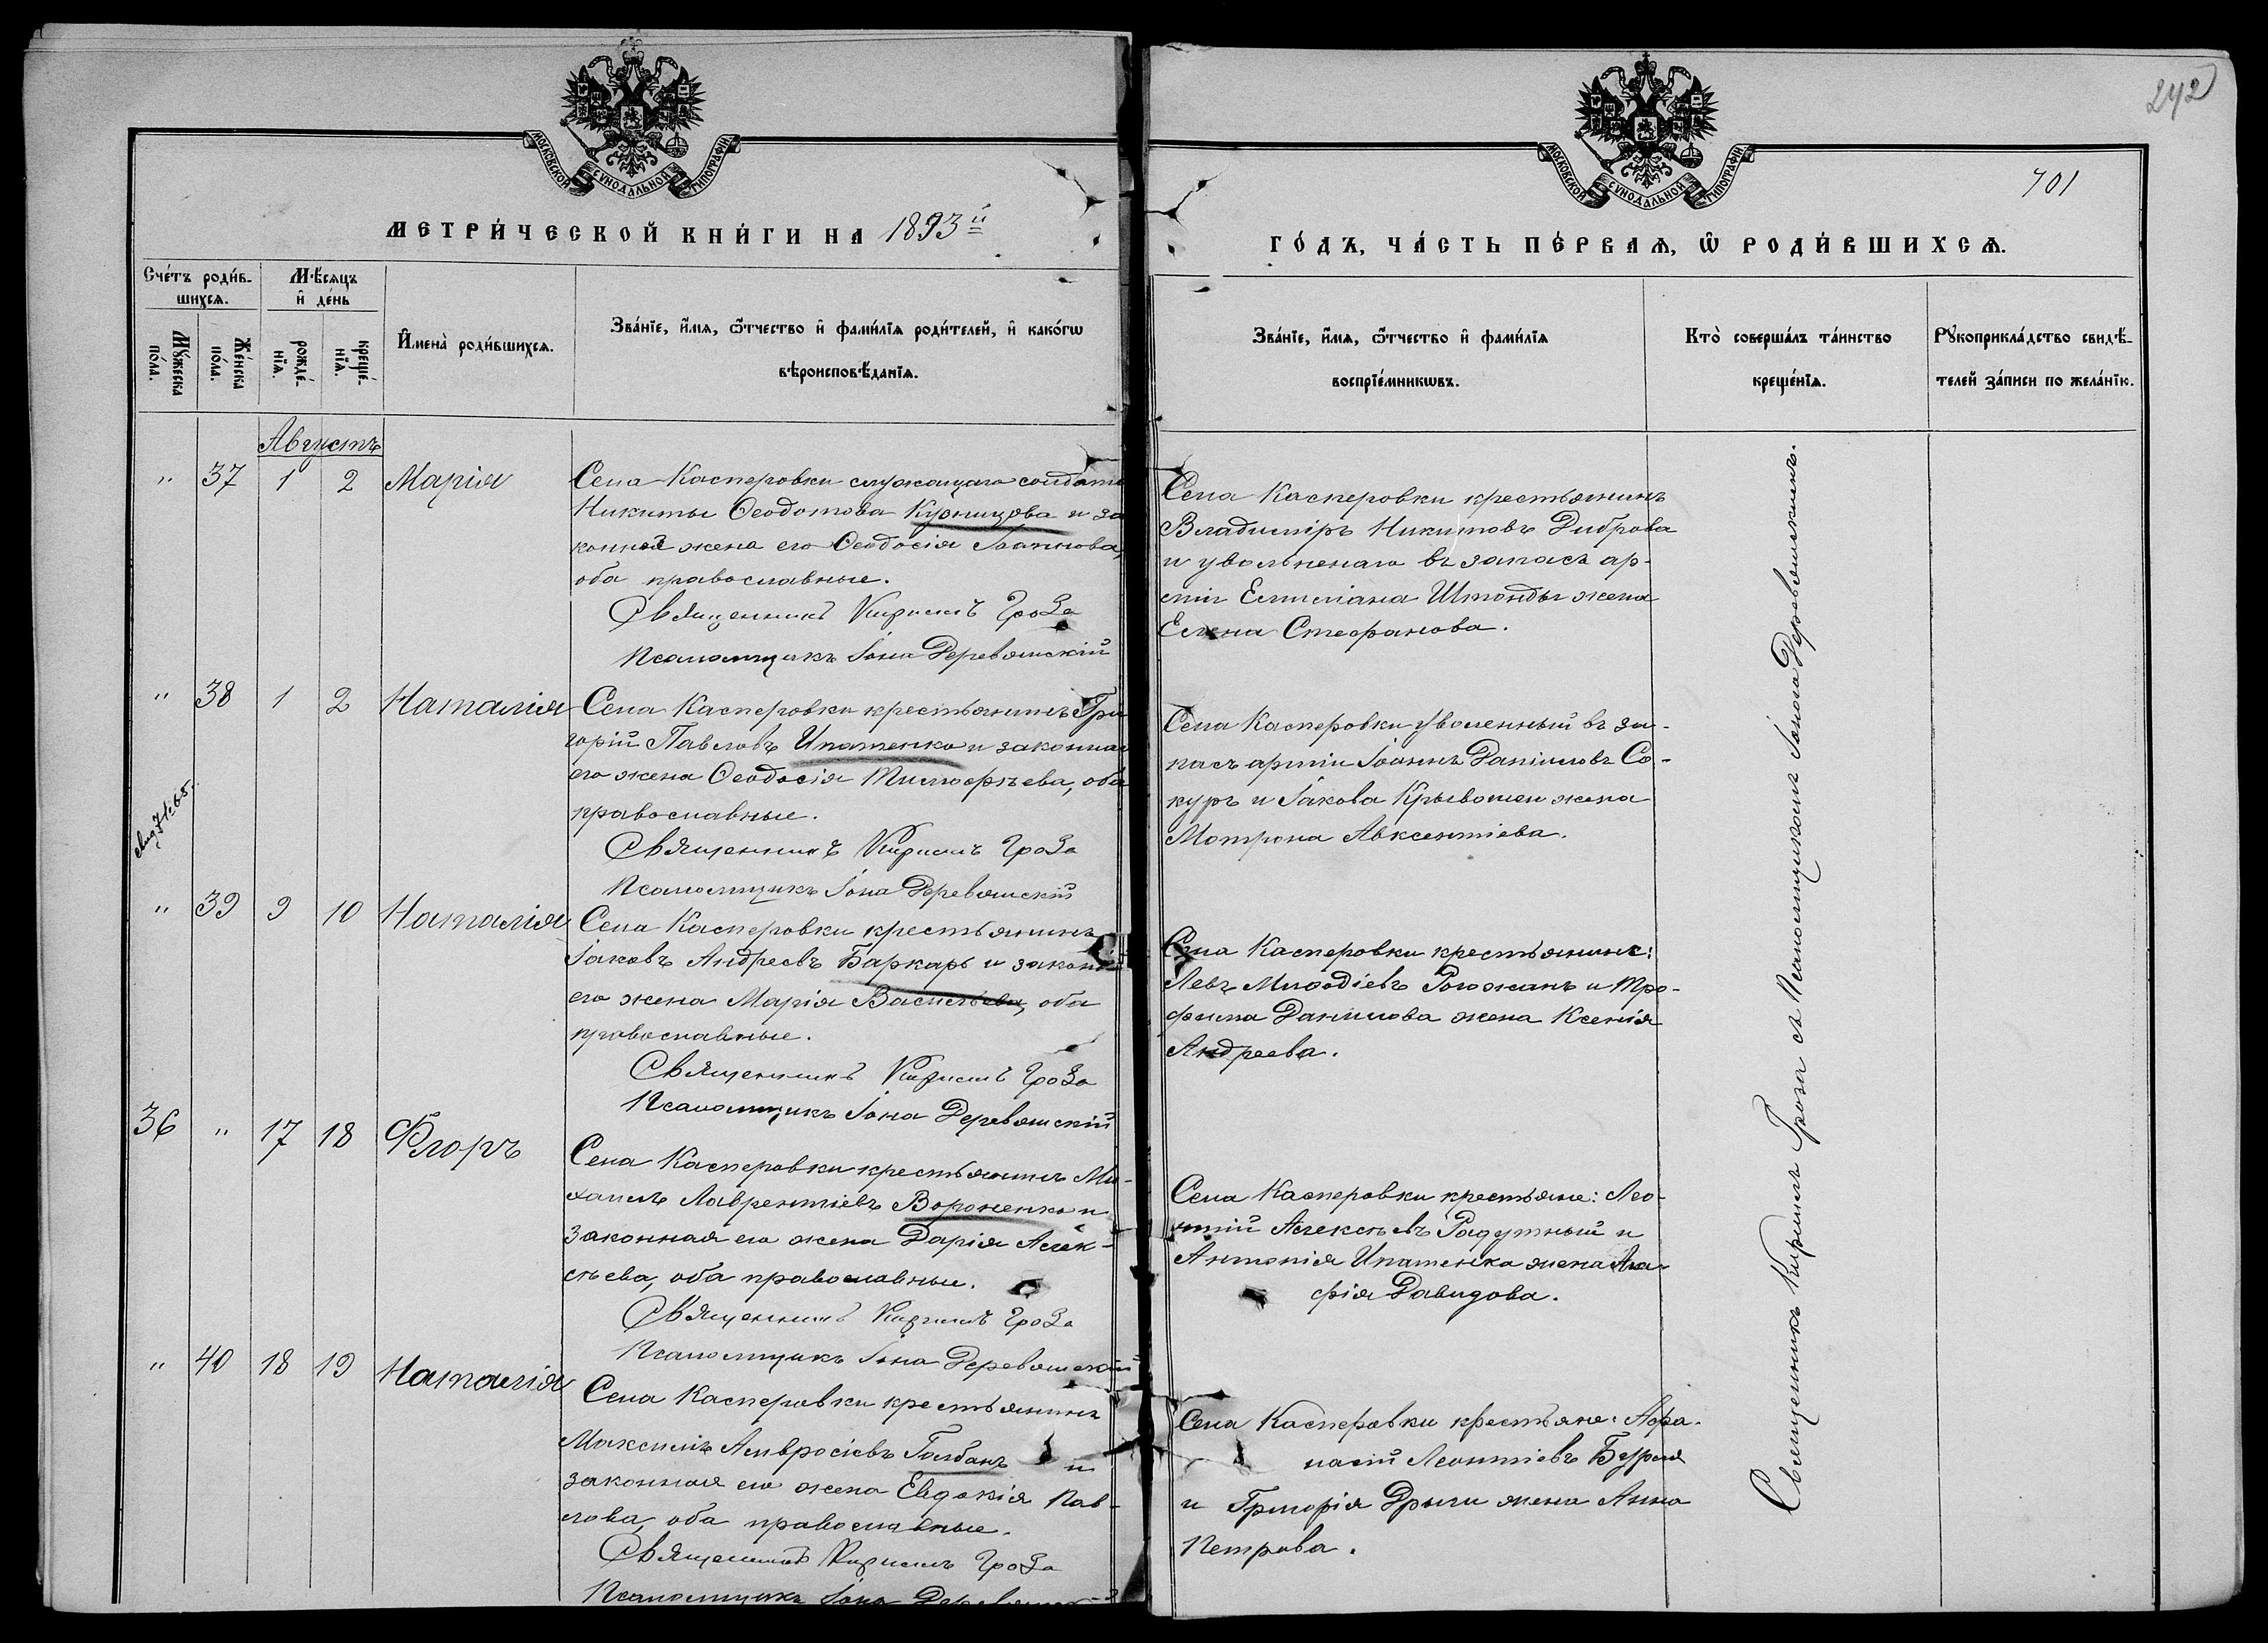 МОСКОВСКОЙ СѴНОДАЛЬНОЙ ТИПОГРАФІИ
МЕТРИ́ЧЕСКОЙ КНИ́ГИ НА 1893й
Сче́тъ роди́в-
шихсѧ.
Мꙋжеска
по́ла.
Же́нска
по́ла.
Мѣ́сѧцъ
и҆ де́нь
рожде́-
нїѧ.
креще́-
нїѧ.
И҆мена̀ роди́вшихсѧ.
Зва́нїе, и҆́мѧ, ѻ҆́тчество и҆ фами́лїѧ роди́телей, и҆ како́гѡ
вѣроисповѣ́данїѧ.
Августъ
" 37 1 2 Марія
Села Касперовки служащаго солдата
Никиты Ѳеодотова Кузницова и за
конная жена его Ѳеодосія Іоаннова,
оба православные.
Священникъ Кириллъ Гроза
Псаломщикъ Іона Деревянскій
" 38 1 2 Наталія
Села Касперовки крестьянинъ Гри
горій Павловъ Ипатенко и законная
его жена Ѳеодосія Тимофѣева, оба
православные.
Священникъ Кириллъ Гроза
Псаломщикъ Іона Деревянскій
" 39 9 10 Наталія
Села Касперовки крестьянинъ
Іаковъ Андреевъ Баркарь и законная
его жена Марія Васильева, оба
православные.
Священникъ Кириллъ Гроза
Псаломщикъ Іона Деревянскій
36 " 17 18 Флоръ
Села Касперовки крестьянинъ Ми-
хаилъ Лаврентіевъ Вороненко и
законная его жена Дарія Алек-
сѣева, оба православные.
Священникъ Кириллъ Гроза
Псаломщикъ Іона Деревянскій
" 40 18 19 Наталія
Села Касперовки крестьянинъ
Максимъ Амвросіевъ Голбанъ и
законная его жена Евдокія Пав-
лова, оба православные.
Священникъ Кириллъ Гроза
Псаломщикъ Іона Деревянскій
242
МОСКОВСКОЙ СѴНОДАЛЬНОЙ ТИПОГРАФІИ
701
ГО́ДЪ, ЧА́СТЬ ПЕ́РВАѦ, Ѡ҆ РОДИ́ВШИХСѦ.
Зва́нїе, и҆́мѧ, ѻ҆́тчество и҆ фами́лїѧ
воспрїе́мникѡвъ.
Кто̀ соверша́лъ та́инство
креще́нїѧ.
Рꙋкоприкла́дство свидѣ́-
телей за́писи по жела́нїю.
Села Касперовки крестьянинъ
Владиміръ Никитовъ Диброва
и уволненаго въ запасъ ар-
міи Емиліана Штонды жена
Елена Стефанова.
Села Касперовки уволенный въ за-
пасъ арміи Іоаннъ Даніиловъ Со-
куръ и Іакова Крывошеи жена
Мотрона Авксентіева.
Села Касперовки крестьянинъ:
Левъ Миѳодіевъ Рогожанъ и Тро-
фима Данилова жена Ксенія
Андреева.
Села Касперовки крестьяне: Лео-
нтій Алексѣевъ Радутный и
Антонія Ипатенка жена Ага-
фія Давидова.
Села Касперовки крестьяне: Афа-
насій Леонтіевъ
и Григорія Дрыги жена Анна
Петрова.
Священникъ Кириллъ Гроза съ Псаломщикомъ Іоною Деревянскимъ.